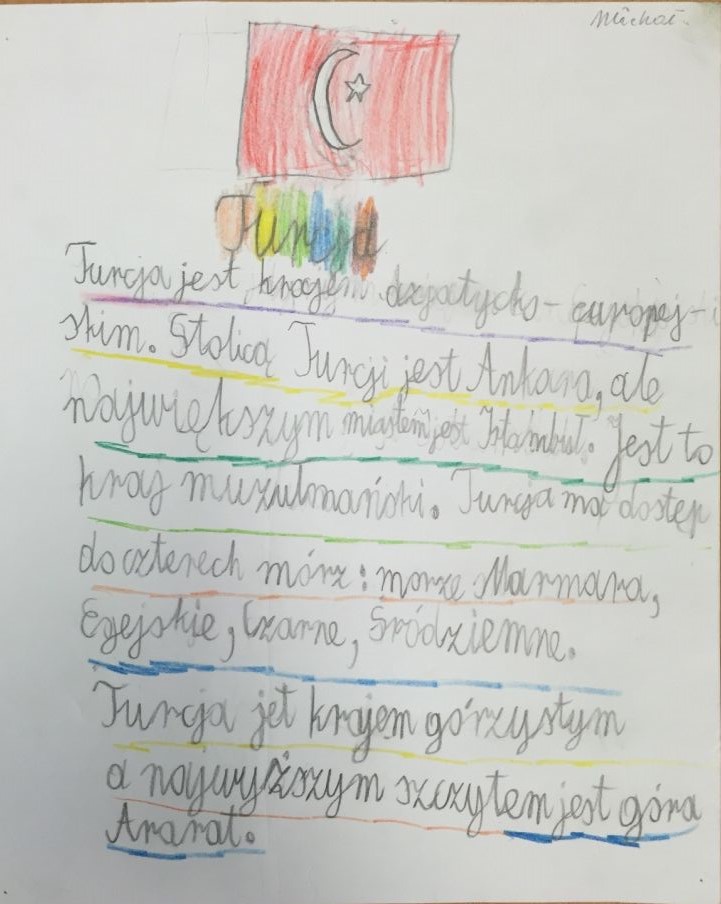 Michał
Turcja
Turcja jest krajem azjatycko - europej -
skim. Stolicą Turcji jest Ankara, ale
największym miastem jest Istambuł. Jest to
kraj muzułmański. Turcja ma dostęp
do czterech mórz: morze Marmara,
Egejskie, Czarne, Śródziemne.
Turcja jet krajem górzystym
a najwyższym szczytem jest góra
Ararat.